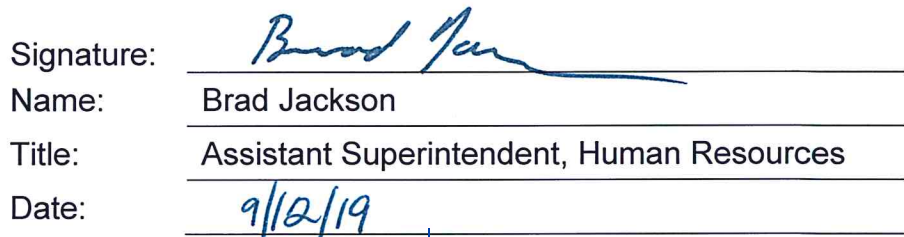 Signature: Brad
Name: Brad Jackson
Title: Assistant Superintendent, Human Resources
Date: 9/12/19